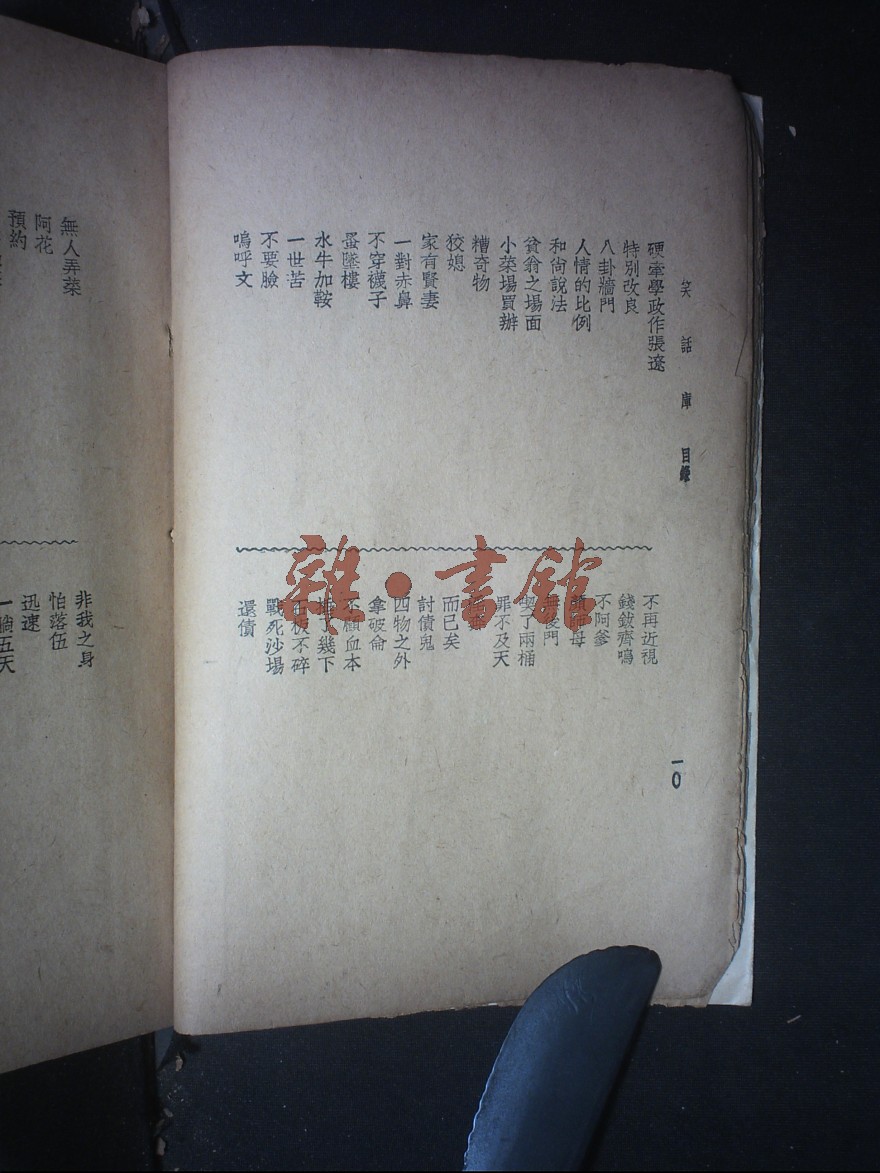 笑話庫 目錄
硬牽學政作張遼
特別改良
八卦牆門
人情的比例
和尙說法
貧翁之場面
小菜場買辦
糟奇物
狡媳
家有賢妻
一對赤鼻
不穿襪子
蛋墜樓
水牛加鞍
一世苦
不要臉
嗚呼文
不再近視
錢鈸齊鳴
不阿爹
母
後門
了兩桶
罪不及天
而已矣
討債鬼
四物之外
拿破侖
不顧血本
了幾下
石板不碎
戰死沙場
還債
一〇
無人弄菜
阿花
預約
非我之身
怕落伍
迅速
一腩五天
雜·書館